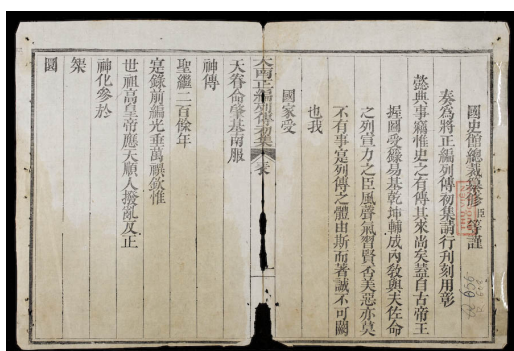 國史館總裁纂修臣等謹
奏爲將正編列傳初集請行刊刻用彰
懿典事竊惟史之有傳其來尚矣蓋自古帝王
握圖受籙易基乾坤輔成內敎與夫佐命
之列宣力之臣風聲氣習賢否美惡亦莫
不有事寔列傳之體由斯而著誠不可闕
也我
國家受
大南正編列傳初集 表
天眷命肇基南服
神傳
聖繼二百餘年
寔錄前編光垂萬禩欽惟
世祖高皇帝應天順人撥亂反正
神化參於
榘
圓